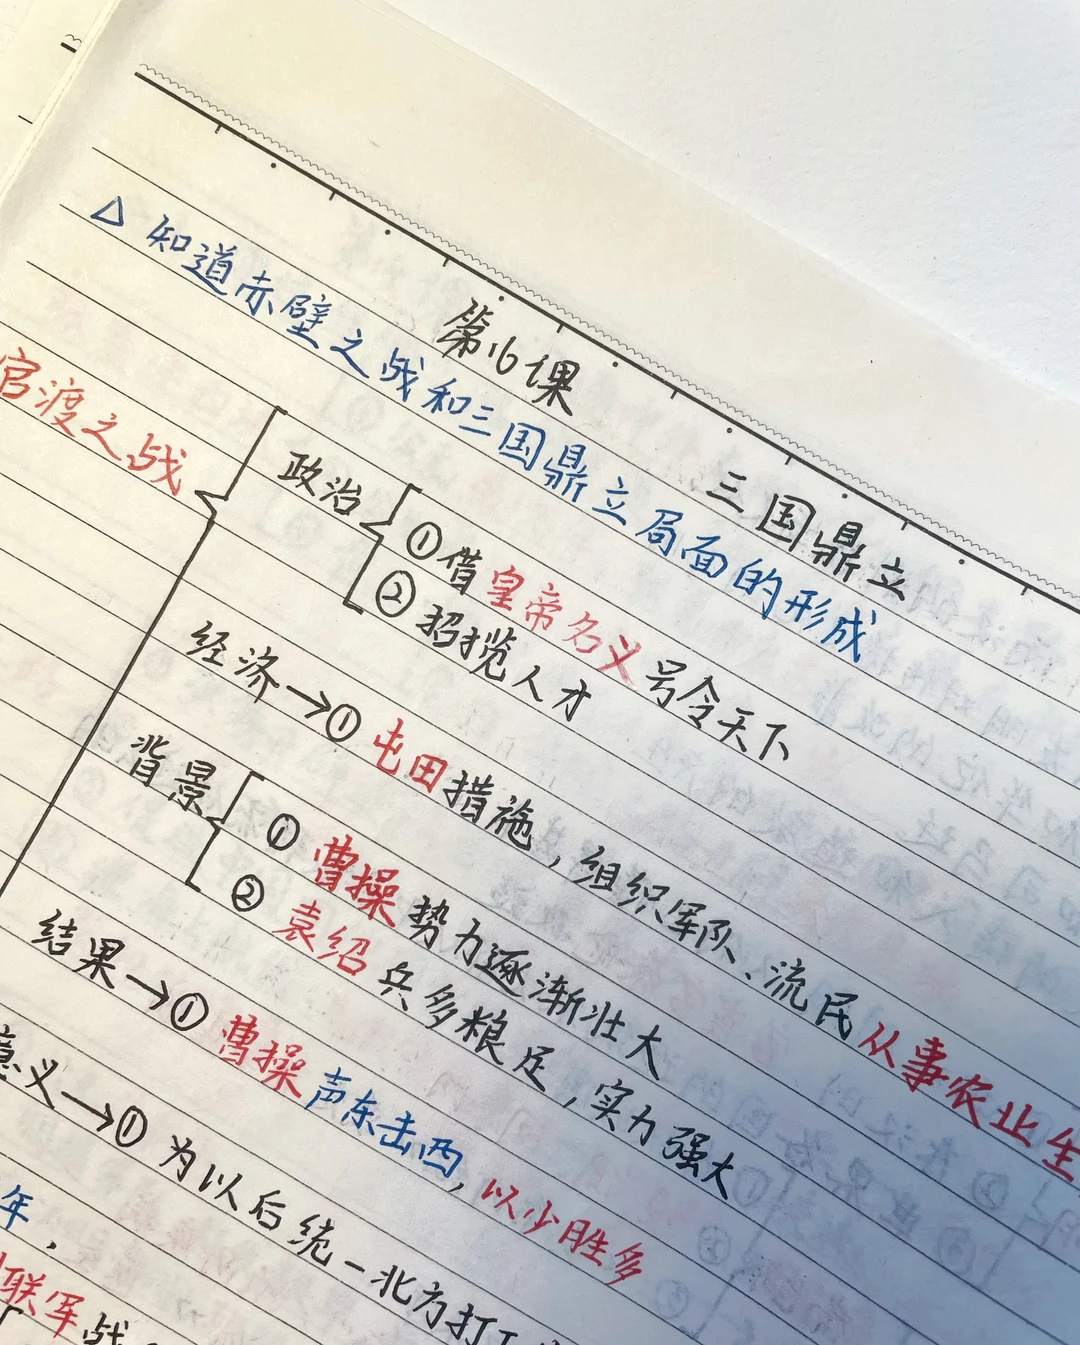 第16课 三国鼎立
△ 知道赤壁之战和三国鼎立局面的形成
官渡之战
政治 ①借皇帝名义号令天下
②招揽人才
经济→① 屯田措施，组织军队、流民从事农业生
背景 ① 曹操势力逐渐壮大
② 袁绍兵多粮足，实力强大
结果→① 曹操声东击西，以少胜多
意义→① 为以后统一北方打
年，
联军战